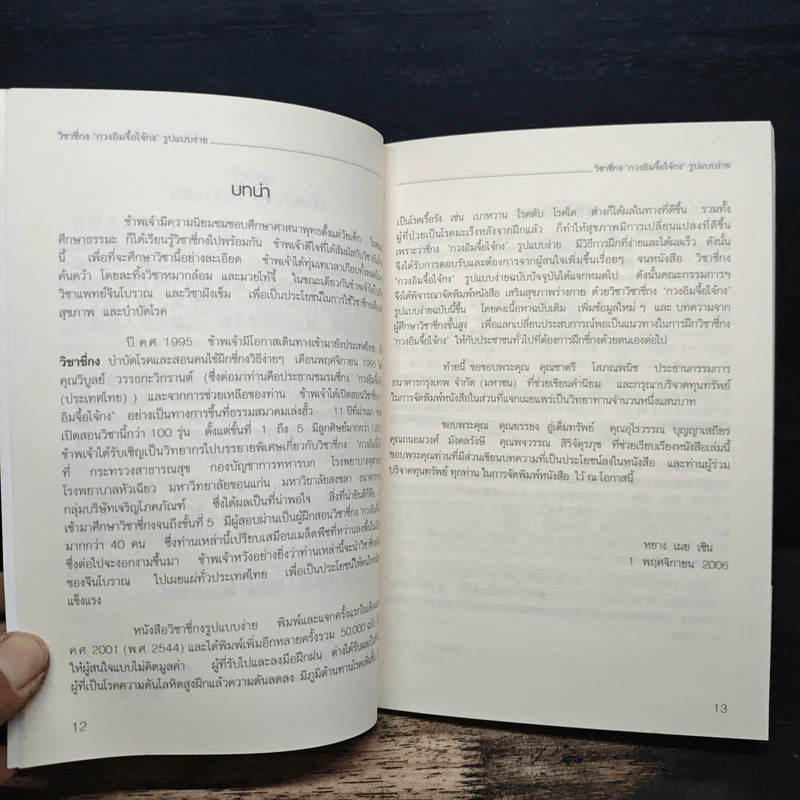 วิชาชี่กง "กวงอิมจื้อไจ้กง" รูปแบบง่าย
บทนำ
ข้าพเจ้ามีความนิยมชมชอบศึกษาศาสนาพุทธตั้งแต่วัยเด็ก ในขณะ
ศึกษาธรรมะ ก็ได้เรียนรู้วิชาชี่กงไปพร้อมกัน ข้าพเจ้าดีใจที่ได้สัมผัสกับวิชา
นี้ เพื่อที่จะศึกษาวิชานี้อย่างละเอียด ข้าพเจ้าได้ทุ่มเทเวลาเกือบทั้งหมด
ค้นคว้า โดยละทิ้งวิชาหมากล้อม และมวยไท้จี้ ในขณะเดียวกันข้าพเจ้าได้
วิชาแพทย์จีนโบราณ และวิชาฝังเข็ม เพื่อเป็นประโยชน์ในการใช้วิชาชี่กง
สุขภาพ และบำบัดโรค
ปี ค.ศ. 1995 ข้าพเจ้ามีโอกาสเดินทางเข้ามายังประเทศไทย
วิชาชี่กง บำบัดโรคและสอนคนใช้ฝึกชี่กงวิธีง่ายๆ เดือนพฤศจิกายน 1995
คุณวิบูลย์ วรรธกะวิกรานต์ (ซึ่งต่อมาท่านคือประธานชมรมชี่กง "กวงอิมจื้อไจ้กง"
(ประเทศไทย) ) และจากการช่วยเหลือของท่าน ข้าพเจ้าได้เปิดสอนวิชาชี่กง
อิมจื้อไจ้กง" อย่างเป็นทางการขึ้นที่ธรรมสมาคมเล่งฮั้ว 11 ปีที่ผ่านมา
เปิดสอนวิชานี้กว่า 100 รุ่น ตั้งแต่ขั้นที่ 1 ถึง 5 มีลูกศิษย์มากกว่า
ข้าพเจ้าได้รับเชิญเป็นวิทยากรไปบรรยายพิเศษเกี่ยวกับวิชาชี่กง
ที่ กระทรวงสาธารณสุข กองบัญชาการทหารบก โรงพยาบาล
โรงพยาบาลหัวเฉียว มหาวิทยาลัยขอนแก่น มหาวิทยาลัยสงขลา ธนาคาร
กลุ่มบริษัทเจริญโภคภัณฑ์ ซึ่งได้ผลเป็นที่น่าพอใจ สิ่งที่น่ายินดีก็คือ
เข้ามาศึกษาวิชาชี่กงจนถึงขั้นที่ 5 มีผู้สอบผ่านเป็นผู้ฝึกสอนวิชาชี่กง
มากกว่า 40 คน ซึ่งท่านเหล่านี้เปรียบเสมือนเมล็ดพืชที่หว่านลง
ซึ่งต่อไปจะงอกงามขึ้นมา ข้าพเจ้าหวังอย่างยิ่งว่าท่านเหล่านี้จะนำวิชาชี่กง
ของจีนโบราณ ไปเผยแผ่ทั่วประเทศไทย เพื่อเป็นประโยชน์ให้คนไทย
แข็งแรง
หนังสือวิชาชี่กงรูปแบบง่าย พิมพ์และแจกครั้งแรกในเดือน
ค.ศ. 2001 (พ.ศ. 2544) และได้พิมพ์เพิ่มอีกหลายครั้งรวม 50,000 ฉบับ
ให้ผู้สนใจแบบไม่คิดมูลค่า ผู้ที่รับไปและลงมือฝึกฝน ต่างได้รับผล
ผู้ที่เป็นโรคความดันโลหิตสูงฝึกแล้วความดันลดลง มีภูมิต้านทานโรคเพิ่มขึ้น
12
วิชาชี่กง "กวงอิมจื้อไจ้กง" รูปแบบง่าย
เป็นโรคเรื้อรัง เช่น เบาหวาน โรคตับ โรคไต ต่างก็ได้ผลในทางที่ดีขึ้น รวมทั้ง
ผู้ที่ป่วยเป็นโรคมะเร็งหลังจากฝึกแล้ว ก็ทำให้สุขภาพมีการเปลี่ยนแปลงที่ดีขึ้น
เพราะว่าชี่กง "กวงอิมจื้อไจ้กง" รูปแบบง่าย มีวิธีการฝึกที่ง่ายและได้ผลเร็ว ดังนั้น
จึงได้รับการตอบรับและต้องการจากผู้สนใจเพิ่มขึ้นเรื่อยๆ จนหนังสือ วิชาชี่กง
"กวงอิมจื้อไจ้กง" รูปแบบง่ายฉบับปัจจุบันได้แจกหมดไป ดังนั้นคณะกรรมการฯ
จึงได้พิจารณาจัดพิมพ์หนังสือ เสริมสุขภาพร่างกาย ด้วยวิชาวิชาชี่กง "กวงอิมจื้อไจ้กง"
รูปแบบง่ายฉบับนี้ขึ้น โดยคงเนื้อหาฉบับเดิม เพิ่มข้อมูลใหม่ ๆ และ บทความจาก
ผู้ศึกษาวิชาชี่กงขั้นสูง เพื่อแลกเปลี่ยนประสบการณ์พอเป็นแนวทางในการฝึกวิชาชี่กง
"กวงอิมจื้อไจ้กง" ให้กับประชาชนทั่วไปที่ต้องการฝึกชี่กงด้วยตนเองต่อไป
ท้ายนี้ ขอขอบพระคุณ คุณชาตรี โสภณพนิช ประธานกรรมการ
ธนาคารกรุงเทพ จำกัด (มหาชน) ที่ช่วยเขียนคำนิยม และกรุณาบริจาคทุนทรัพย์
ในการจัดพิมพ์หนังสือในส่วนที่แจกเผยแพร่เป็นวิทยาทานจำนวนหนึ่งแสนบาท
ขอบพระคุณ คุณยรรยง อู่เต็มทรัพย์ คุณอุไรวรรณ บุญญาเสถียร
คุณถนอมวงศ์ มังคลรังษี คุณพจวรรณ สิริจัตุรภุช ที่ช่วยเรียบเรียงหนังสือเล่มนี้
ขอบพระคุณท่านที่มีส่วนเขียนบทความที่เป็นประโยชน์ลงในหนังสือ และท่านผู้ร่วม
บริจาคทุนทรัพย์ ทุกท่าน ในการจัดพิมพ์หนังสือ ไว้ ณ โอกาสนี้
หยาง เผย เซิน
1 พฤศจิกายน 2006
13